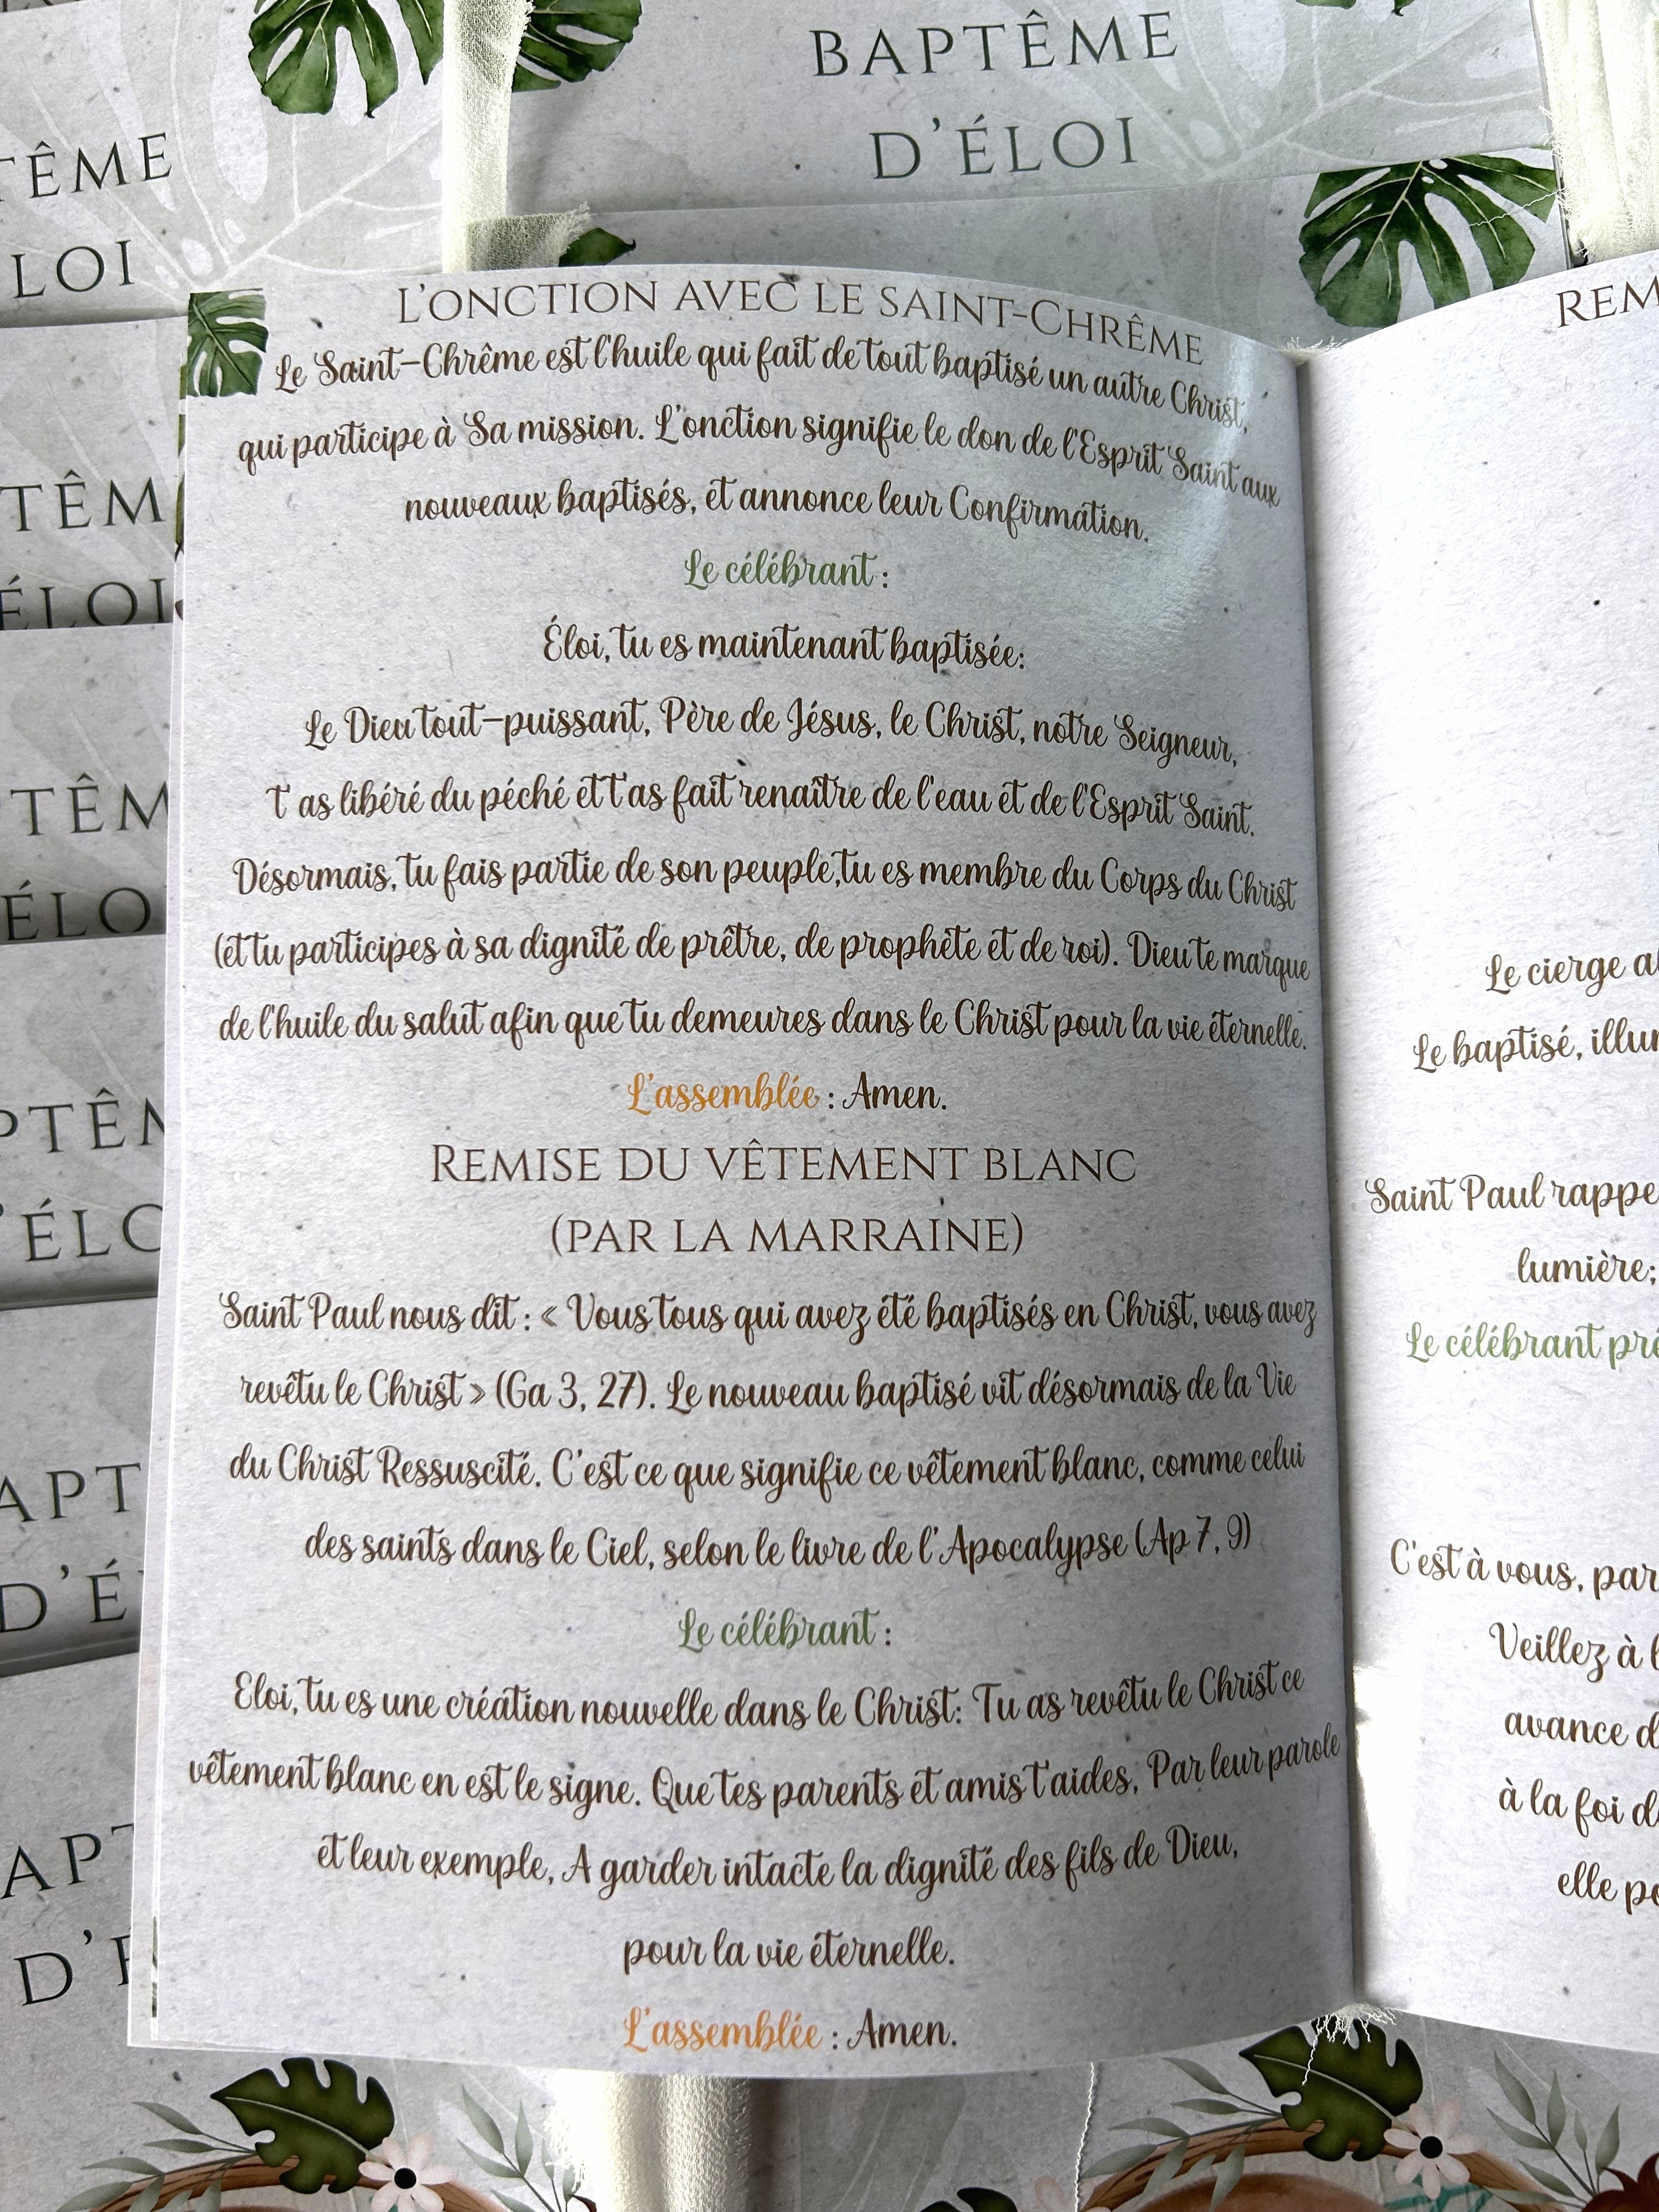 BAPTÊME
D'ÉLOI
TÊME
LOI
TÊM
ÉLOI
TÊM
ÉLO
PTÊM
'ÉLO
APT
D'É
APT
D'É
L'ONCTION AVEC LE SAINT-CHRÊME
Le Saint-Chrême est l'huile qui fait de tout baptisé un autre Christ,
qui participe à Sa mission. L'onction signifie le don de l'Esprit Saint aux
nouveaux baptisés, et annonce leur Confirmation.
Le célébrant :
Éloi, tu es maintenant baptisée:
Le Dieu tout-puissant, Père de Jésus, le Christ, notre Seigneur,
t'as libéré du péché et t'as fait renaître de l'eau et de l'Esprit Saint.
Désormais, tu fais partie de son peuple,tu es membre du Corps du Christ
(et tu participes à sa dignité de prêtre, de prophète et de roi). Dieu te marque
de l'huile du salut afin que tu demeures dans le Christ pour la vie éternelle.
L'assemblée : Amen.
REMISE DU VÊTEMENT BLANC
(PAR LA MARRAINE)
Saint Paul nous dit : « Vous tous qui avez été baptisés en Christ, vous avez
revêtu le Christ » (Ga 3, 27). Le nouveau baptisé vit désormais de la Vie
du Christ Ressuscité. C'est ce que signifie ce vêtement blanc, comme celui
des saints dans le Ciel, selon le livre de l'Apocalypse (Ap 7, 9)
Le célébrant :
Eloi, tu es une création nouvelle dans le Christ: Tu as revêtu le Christ ce
vêtement blanc en est le signe. Que tes parents et amis t'aides, Par leur parole
et leur exemple, A garder intacte la dignité des fils de Dieu,
pour la vie éternelle.
L'assemblée : Amen.
REM
Le cierge al
Le baptisé, illu
Saint Paul rappe
lumière;
Le célébrant pré
C'est à vous, par
Veillez à l
avance d
à la foi d
elle po